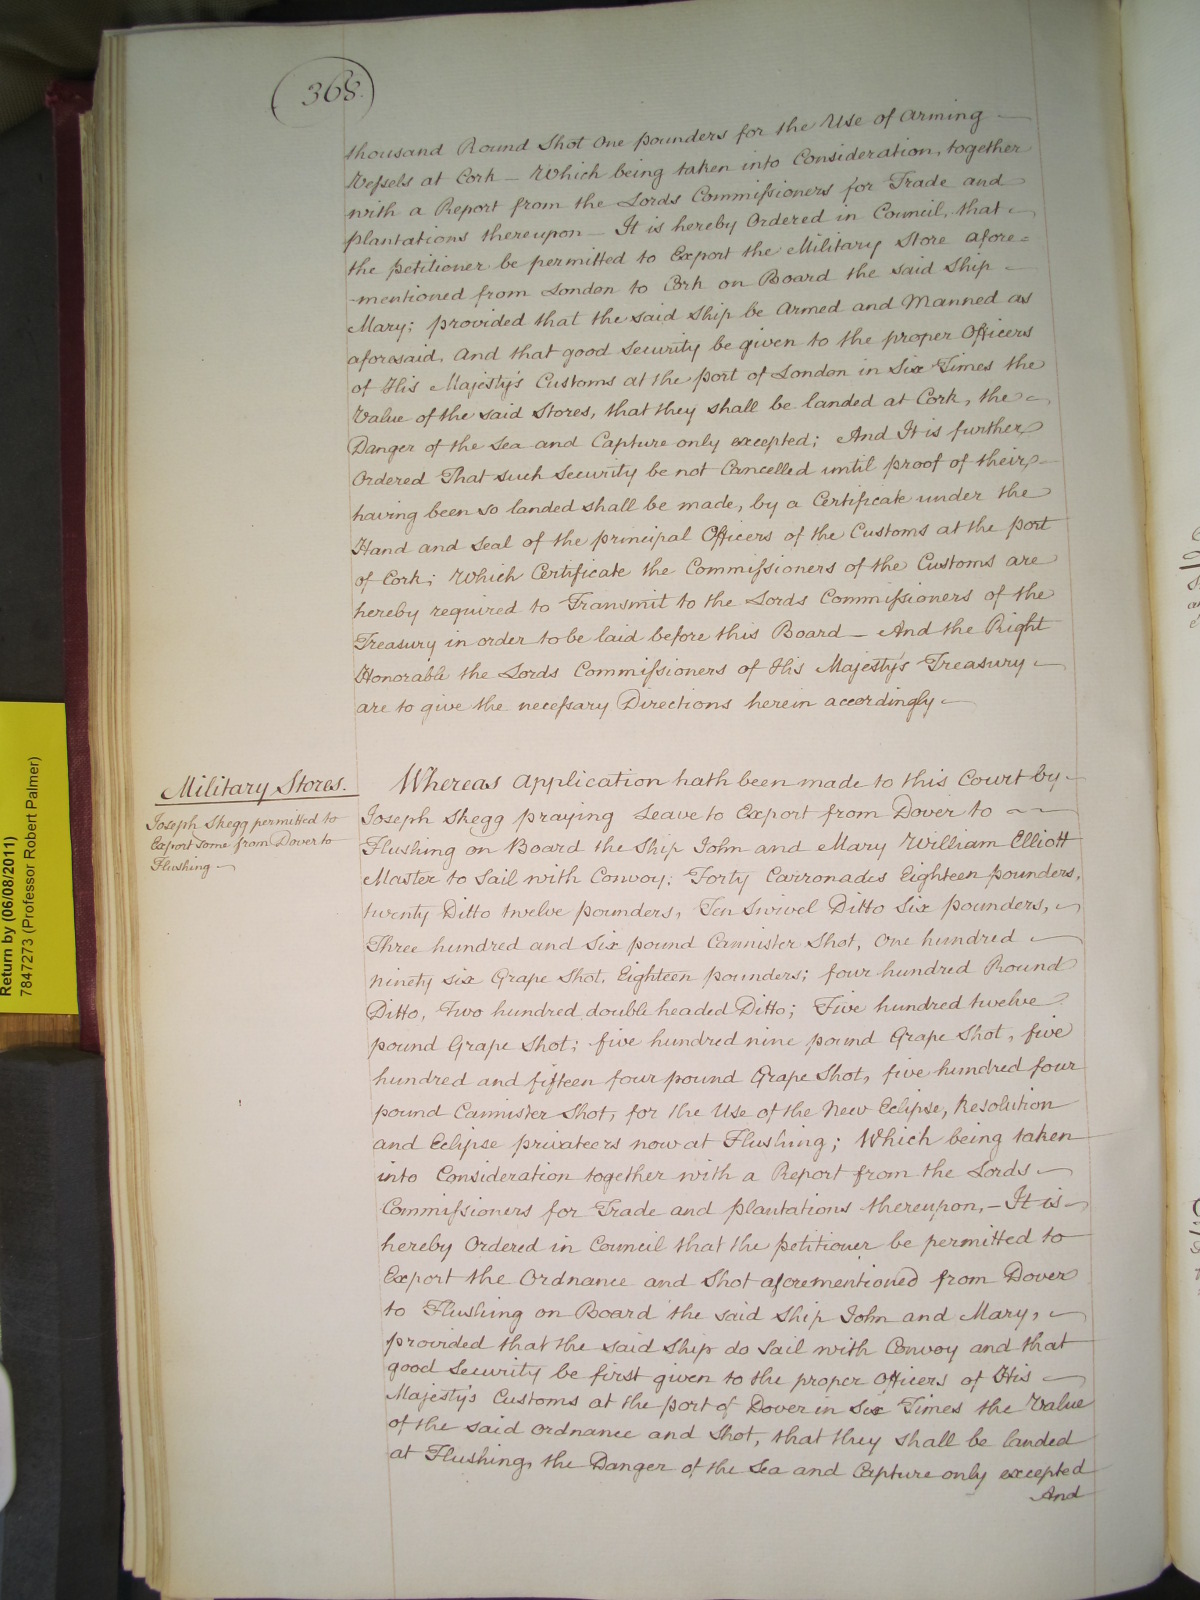 368.
thousand Round Shot One pounders for the Use of Arming —
Vessels at Cork — Which being taken into Consideration, together
with a Report from the Lords Commissioners for Trade and
plantations thereupon — It is hereby Ordered in Council, that —
the petitioner be permitted to Export the Military Store afore=
-mentioned from London to Cork on Board the said Ship —
Mary; provided that the said Ship be Armed and Manned as
aforesaid, And that good Security be given to the proper Officers
of His Majesty's Customs at the port of London in Six Times the
Value of the said Stores, that they shall be landed at Cork, the —
Danger of the Sea and Capture only excepted; And It is further
Ordered That such Security be not Cancelled until proof of their —
having been so landed shall be made, by a Certificate under the
Hand and Seal of the principal Officers of the Customs at the port
of Cork; Which Certificate the Commissioners of the Customs are
hereby required to Transmit to the Lords Commissioners of the
Treasury in order to be laid before this Board — And the Right
Honorable the Lords Commissioners of His Majesty's Treasury —
are to give the necessary Directions herein accordingly —
Military Stores.
Joseph Skegg permitted to
Export some from Dover to
Flushing —
Whereas Application hath been made to this Court by —
Joseph Skegg praying Leave to Export from Dover to —
Flushing on Board the Ship John and Mary William Elliott
Master to Sail with Convoy; Forty Carronades Eighteen pounders,
twenty Ditto twelve pounders, Ten Swivel Ditto Six pounders, —
Three hundred and Six pound Cannister Shot, One hundred —
ninety six Grape Shot, Eighteen pounders; four hundred Round
Ditto, Two hundred double headed Ditto; Five hundred twelve
pound Grape Shot; five hundred nine pound Grape Shot, five
hundred and fifteen four pound Grape Shot, five hundred four
pound Cannister Shot, for the Use of the New Eclipse, Resolution
and Eclipse privateers now at Flushing; Which being taken
into Consideration together with a Report from the Lords —
Commissioners for Trade and plantations thereupon, — It is —
hereby Ordered in Council that the petitioner be permitted to
Export the Ordnance and Shot aforementioned from Dover
to Flushing on Board the said Ship John and Mary, —
provided that the said Ship do Sail with Convoy and that
good Security be first given to the proper Officers of His —
Majesty's Customs at the port of Dover in Six Times the Value
of the said Ordnance and Shot, that they shall be landed
at Flushing, the Danger of the Sea and Capture only excepted
And
Return by (06/08/2011)
7847273 (Professor Robert Palmer)